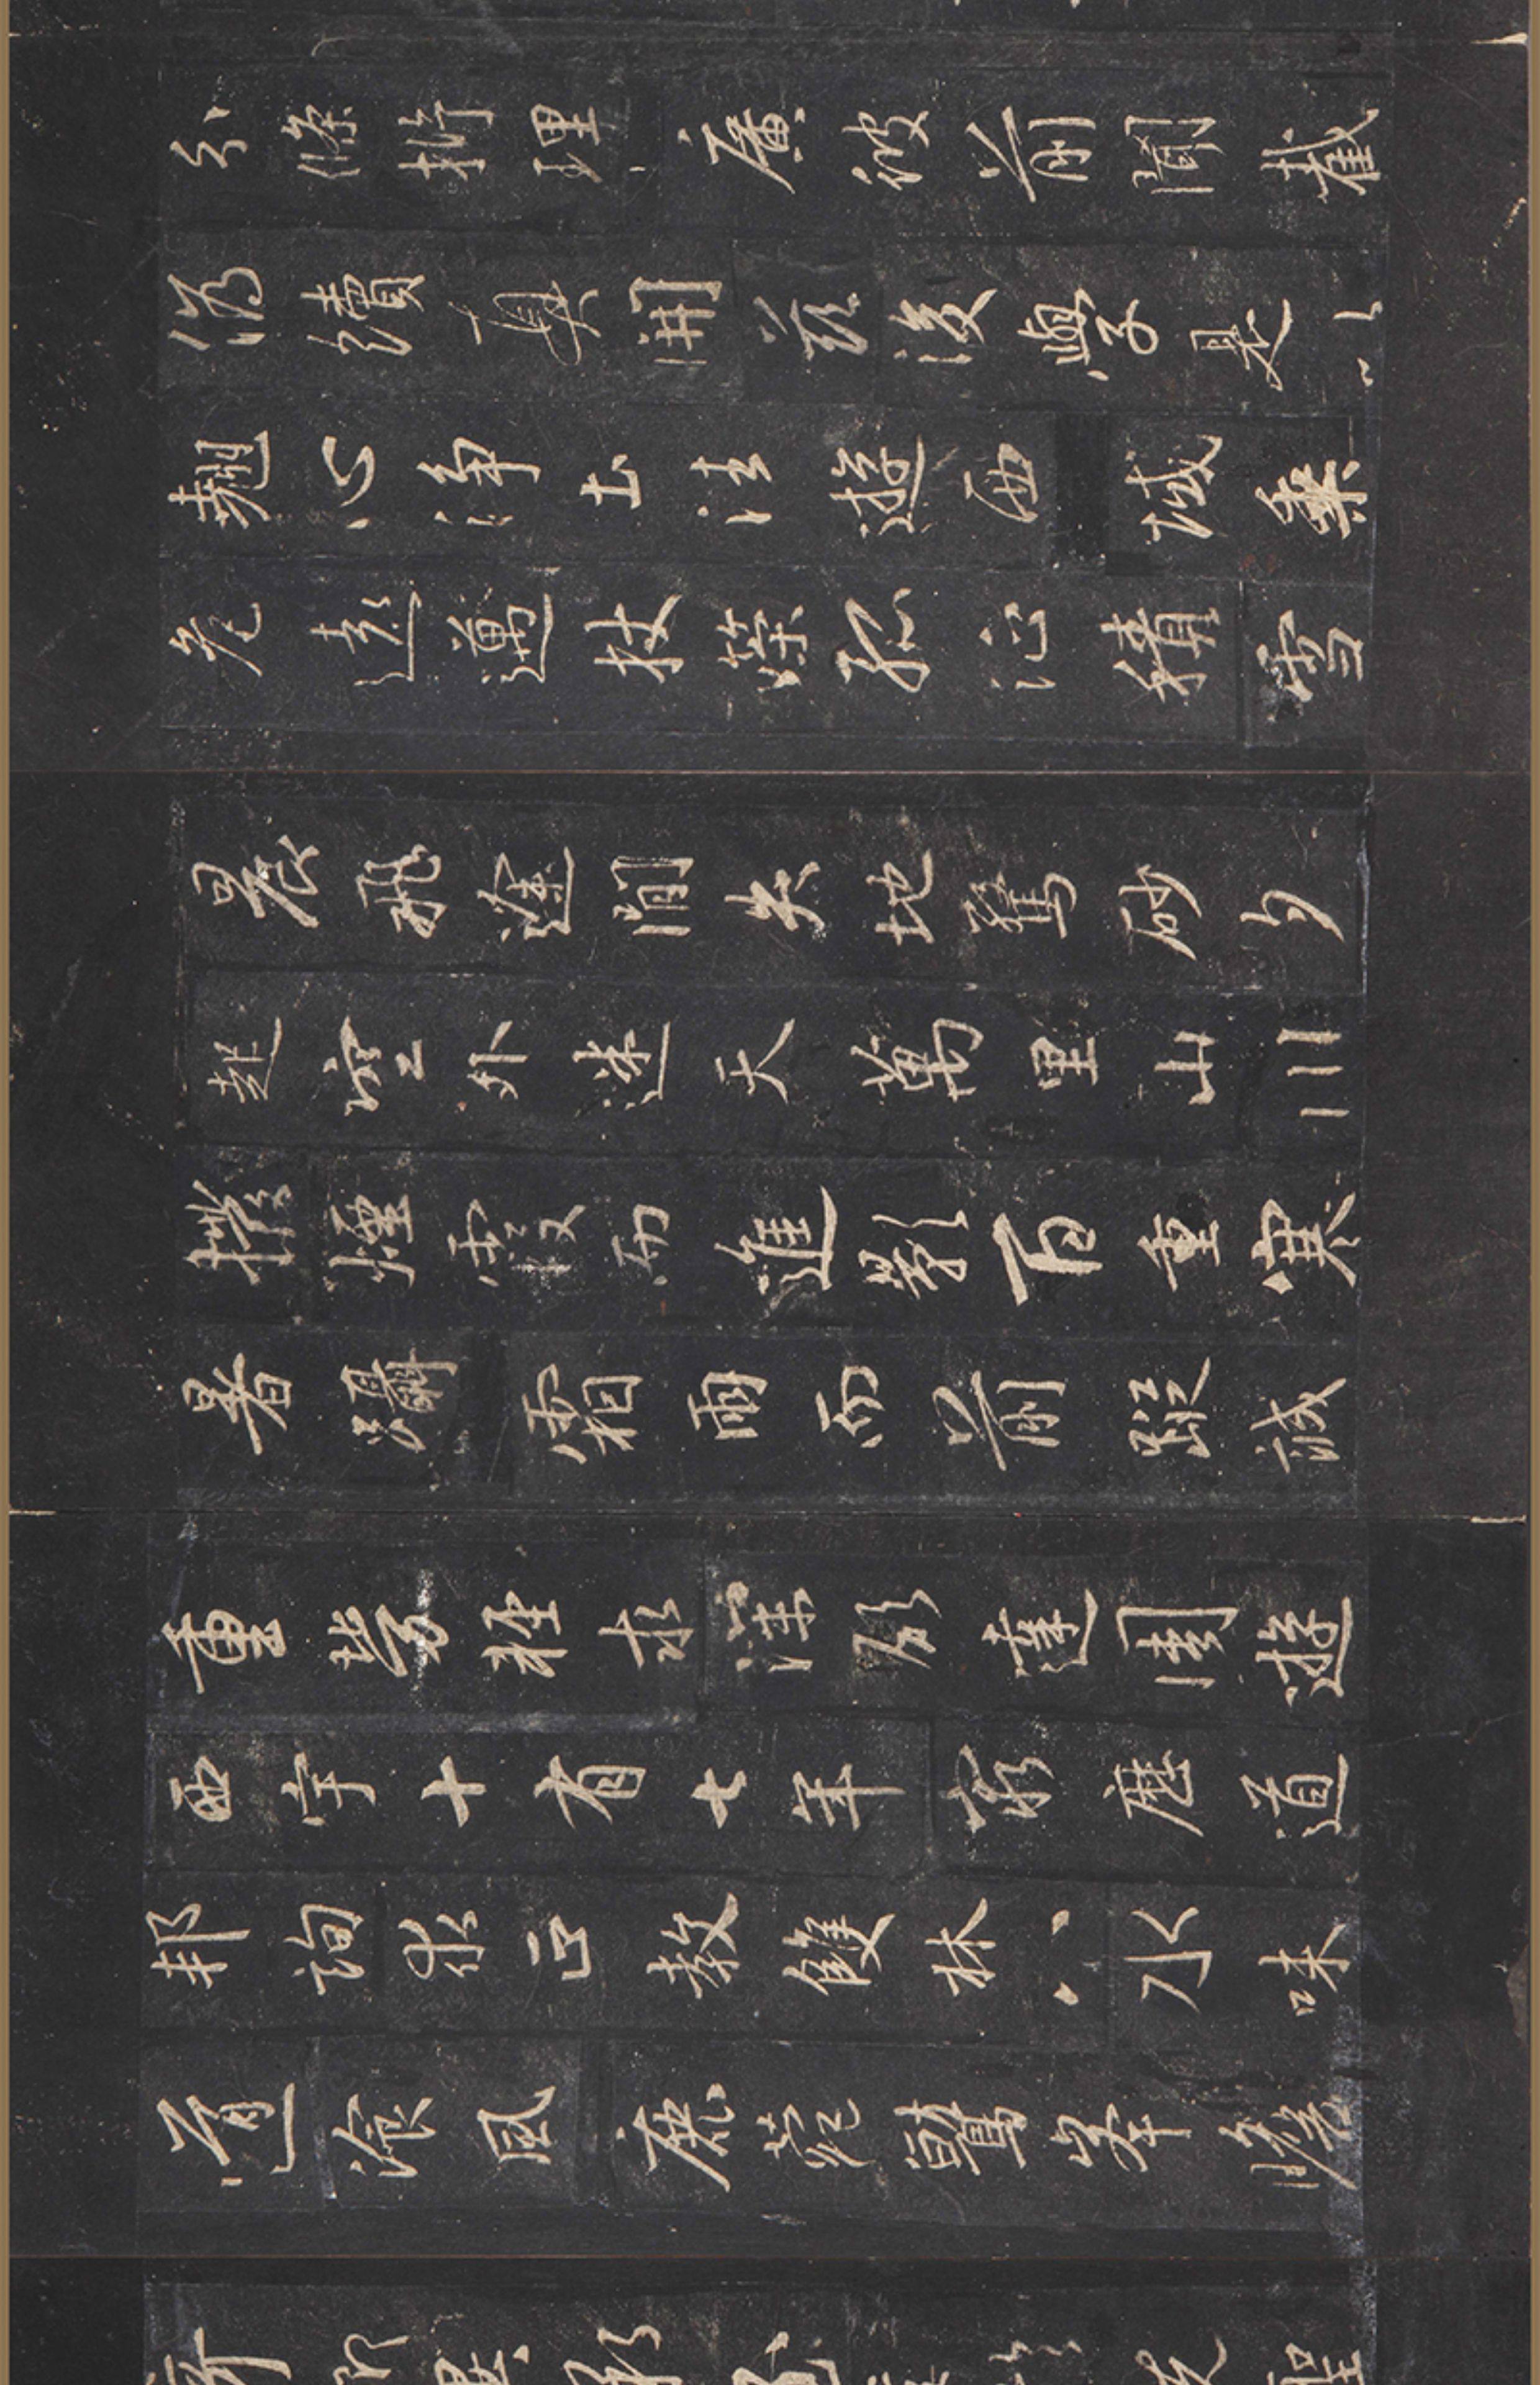 分條析理廣彼前聞截
偽續真開茲後學是以
翹心淨土法遊西域乘
危遠邁杖策孤征積雪
晨飛途間失地驚砂夕
起空外迷天萬里山川
撥煙霞而進影百重寒
暑躡霜雨而前蹤誠
重勞輕求深願達周遊
西宇十有七年窮歷道
邦詢求正教雙林八水味
道湌風鹿菀鷲峯瞻